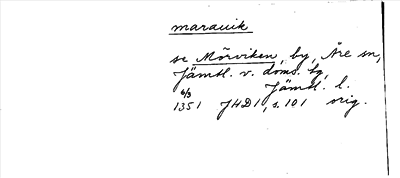 marauik
se Mörviken, by, Åre sn,
Jämtl. v. doms. bg,
Jämtl. l.
6/3
1351 JHD1, s. 101 orig.